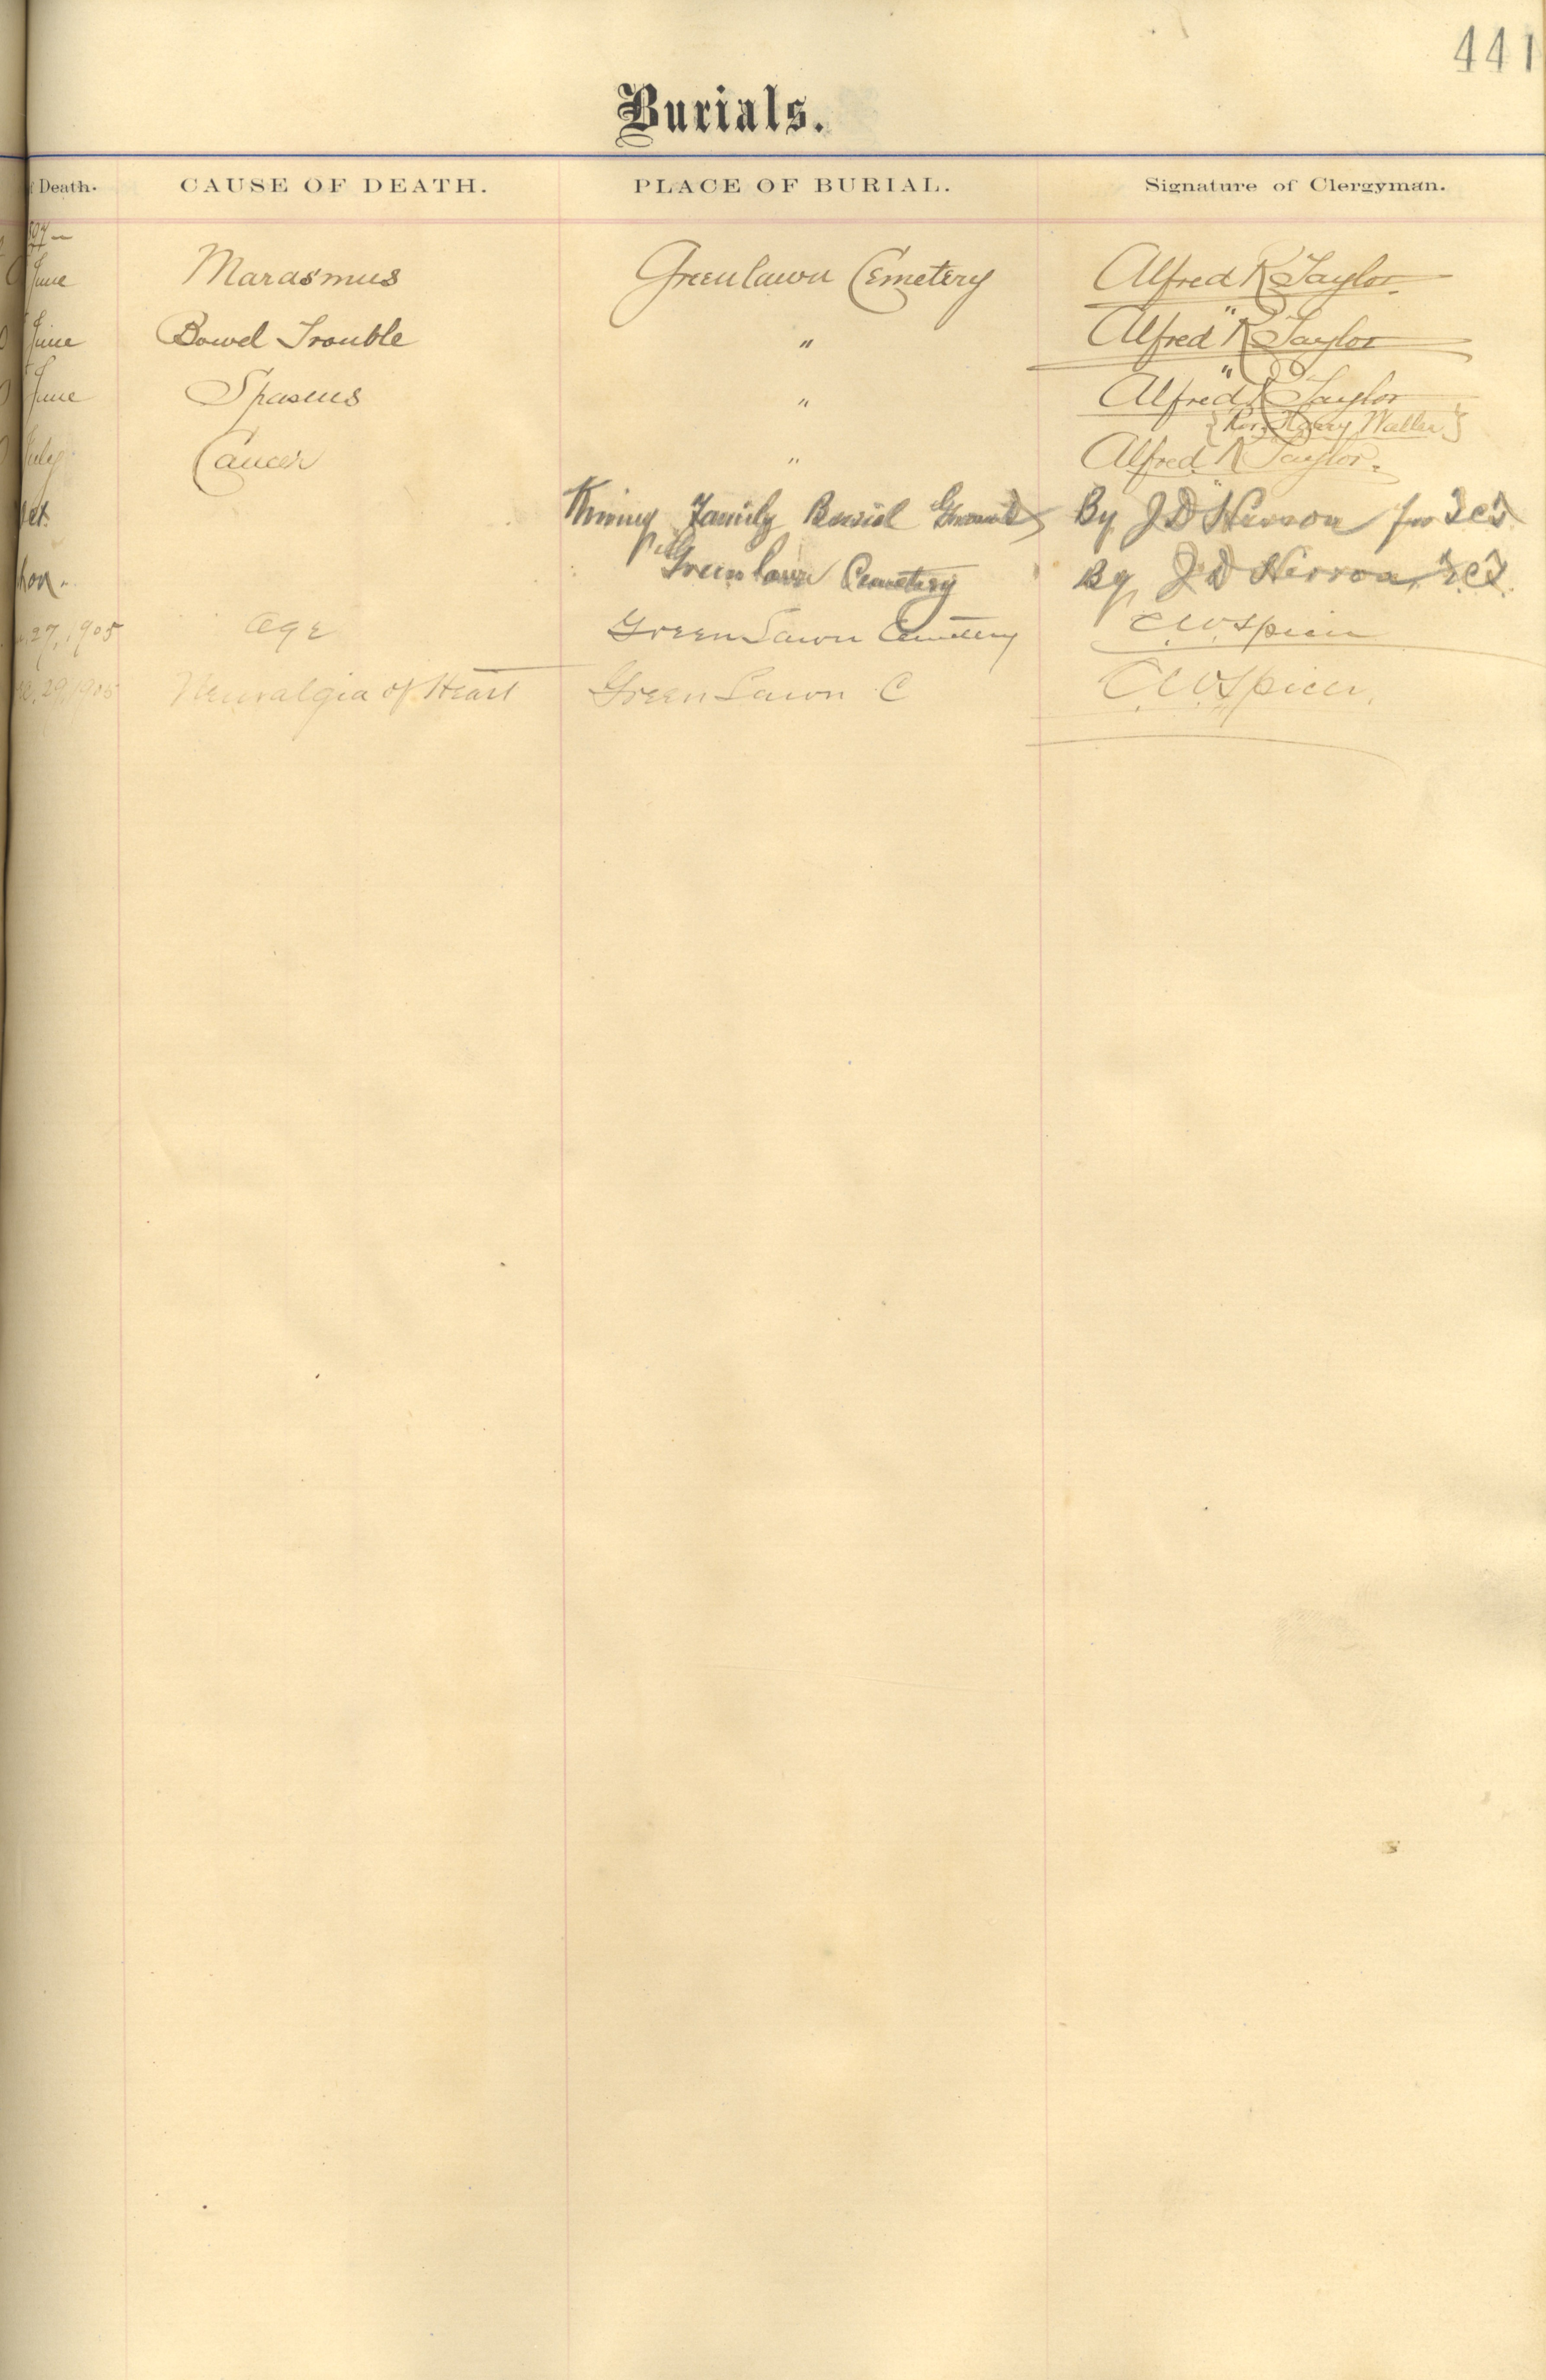 441
Burials.
Death. CAUSE OF DEATH. PLACE OF BURIAL. Signature of Clergyman.
June Marasmus Greenlawn Cemetery Alfred R Taylor.
June Bowel Trouble " Alfred " R Taylor
June Spasms " Alfred " R Taylor
{Rev. Harry Waller}
July Cancer " Alfred R Taylor.
Family Burial Ground By J D Herron
Green lawn Cemetery By J D Herron
27, 1905 age Green Lawn Cemetery C.W. Spicer
29, 1905 Neuralgia of Heart Green Lawn C C.W. Spicer.